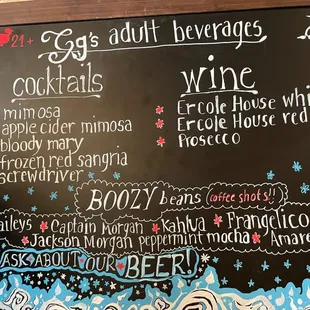 21+ Gg's adult beverages
cocktails
mimosa
apple cider mimosa
bloody mary
frozen red sangria
screwdriver
wine
Ercole House whi
Ercole House red
Prosecco
BOOZY beans (coffee shots!!)
aileys Captain Morgan Kahlua Frangelico
Jackson Morgan peppermint mocha Amare
ASK ABOUT OUR BEER!